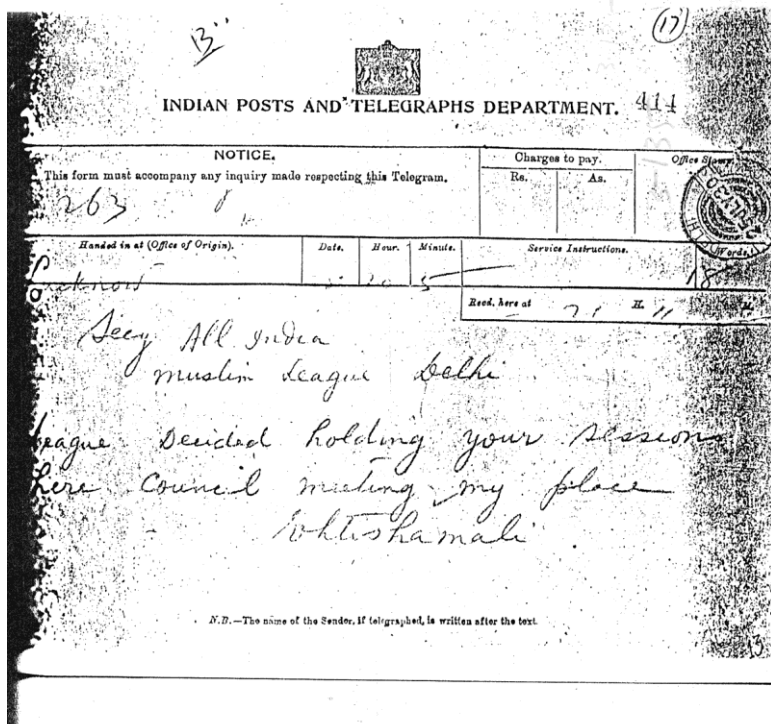 13"
(17)
INDIAN POSTS AND TELEGRAPHS DEPARTMENT. 414
NOTICE.
This form must accompany any inquiry made respecting this Telegram.
Charges to pay.
Rs. As.
Office Stamp
263
Handed in at (Office of Origin). Date. Hour. Minute. Service Instructions. Words.
Lucknow 20 5 18
Recd. here at 21 H. 11 M.
Secy All India
Muslim League Delhi
League Decided holding your sessions
here Council meeting my place
Ehtishamali
N.B.—The name of the Sender, if telegraphed, is written after the text.
13